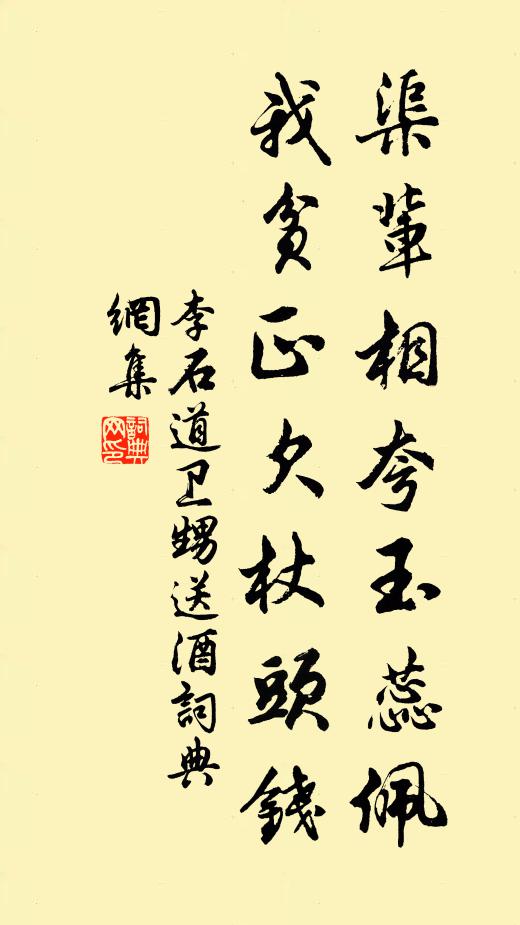 渠輩相夸玉蕊佩
我貧正欠杖頭錢
李石道卫甥送酒詞典
網集
詞典
网印